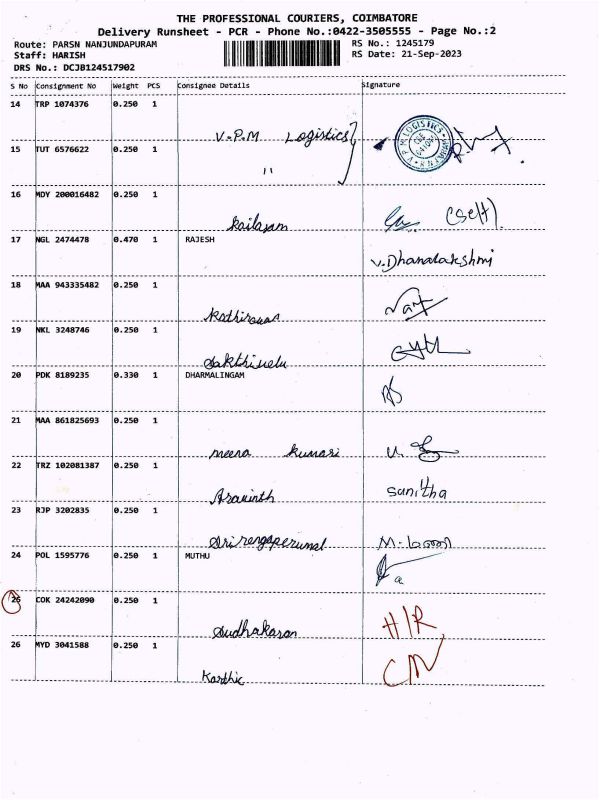 THE PROFESSIONAL COURIERS, COIMBATORE
Delivery Runsheet - PCR - Phone No.:0422-3505555 - Page No.:2
Route: PARSN NANJUNDAPURAM RS No.: 1245179
Staff: HARISH RS Date: 21-Sep-2023
DRS No.: DCJB124517902
S No Consignment No Weight PCS Consignee Details Signature
14 TRP 1074376 0.250 1
V.P.M Logistics
15 TUT 6576622 0.250 1
"
16 MDY 200016482 0.250 1
Kailasam (Self)
17 NGL 2474478 0.470 1 RAJESH
V.Dhanalakshmi
18 MAA 943335482 0.250 1
Kathiravan
19 NKL 3248746 0.250 1
Sakthivelu
20 PDK 8189235 0.330 1 DHARMALINGAM
21 MAA 861825693 0.250 1
meena kumari
22 TRZ 102081387 0.250 1
Aravinth Sunitha
23 RJP 3202835 0.250 1
Srirengaperumal
24 POL 1595776 0.250 1 MUTHU
25 COK 24242090 0.250 1
Sudhakaran H/R
26 MYD 3041588 0.250 1
Karthic CN